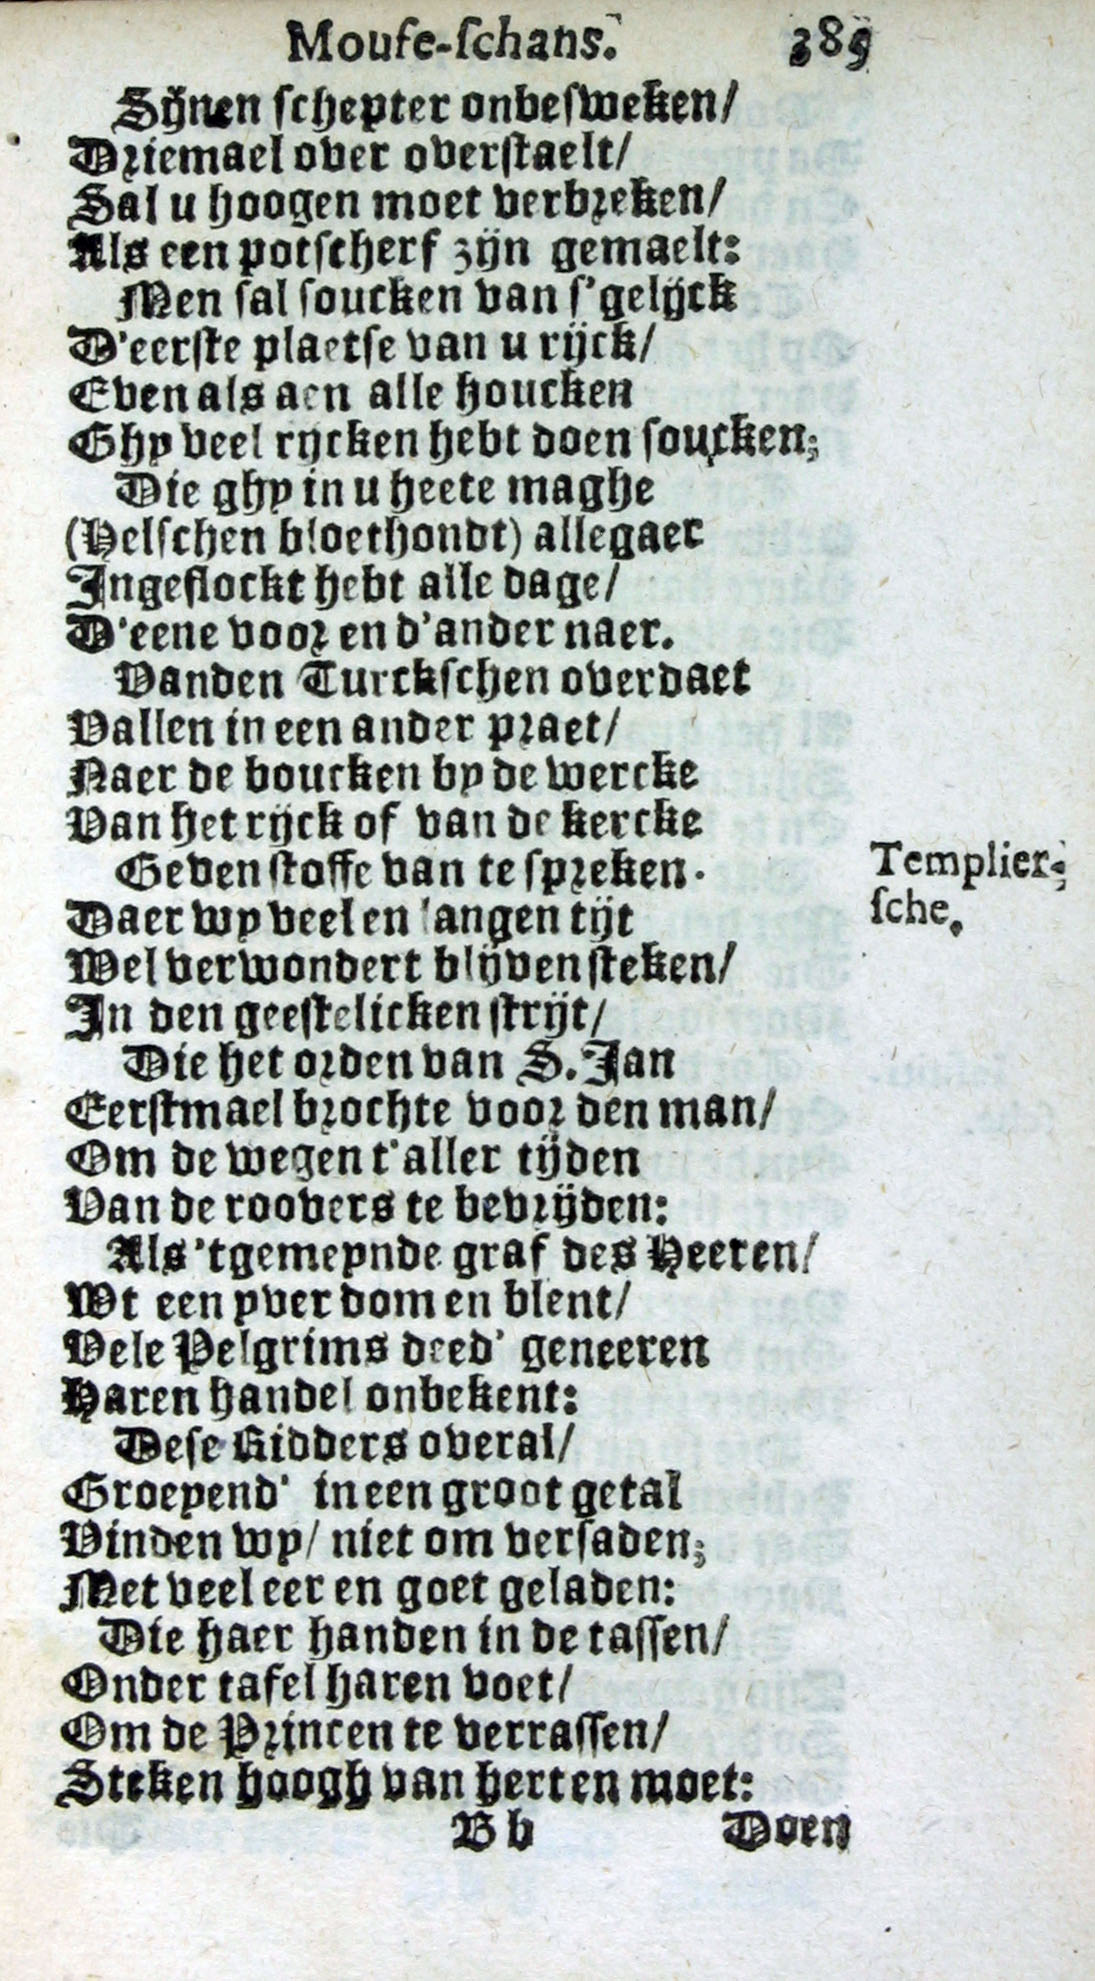 Mouse-schans. 385
Sijnen schepter onbesweken/
Driemael over overstaelt/
Sal u hoogen moet verbreken/
Als een potscherf zijn gemaelt:
Men sal soucken van s'gelijck
D'eerste plaetse van u rijck/
Even als aen alle houcken
Ghy veel rycken hebt doen soucken;
Die ghy in u heete maghe
(Helschen bloethondt) allegaer
Ingeslockt hebt alle dage/
D'eene voor en d'ander naer.
Vanden Turckschen overdaet
Vallen in een ander praet/
Naer de boucken by de wercke
Van het rijck of van de kercke
Geven stoffe van te spreken.
Templier-
sche.
Daer wy veel en langen tijt
Wel verwondert blijven steken/
In den geestelicken strijt/
Die het orden van S. Jan
Eerstmael brochte voor den man/
Om de wegen t'aller tijden
Van de roovers te bevrijden:
Als 'tgemeynde graf des Heeren/
Wt een yver dom en blent/
Vele Pelgrims deed' geneeren
Haren handel onbekent:
Dese Ridders overal/
Groeyend' in een groot getal
Vinden wy/ niet om versaden;
Met veel eer en goet geladen:
Die haer handen in de tassen/
Onder tafel haren voet/
Om de Princen te verrassen/
Steken hoogh van hert en moet:
Bb Doen